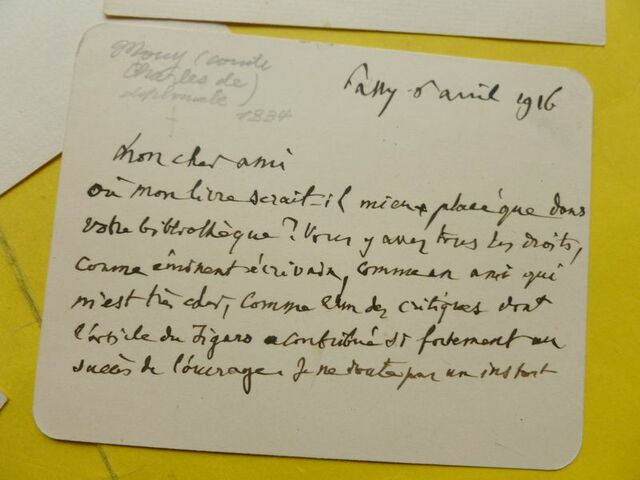 Mouy (comte
Charles de)
diplomate
1834
Passy 6 avril 1916
Mon cher ami
où mon livre serait-il mieux placé que dans
votre bibliothèque? Vous y avez tous les droits,
comme éminent écrivain, comme un ami qui
m'est très cher, comme l'un des critiques dont
l'article du Figaro a contribué si fortement au
succès de l'ouvrage. Je ne doute pas un instant